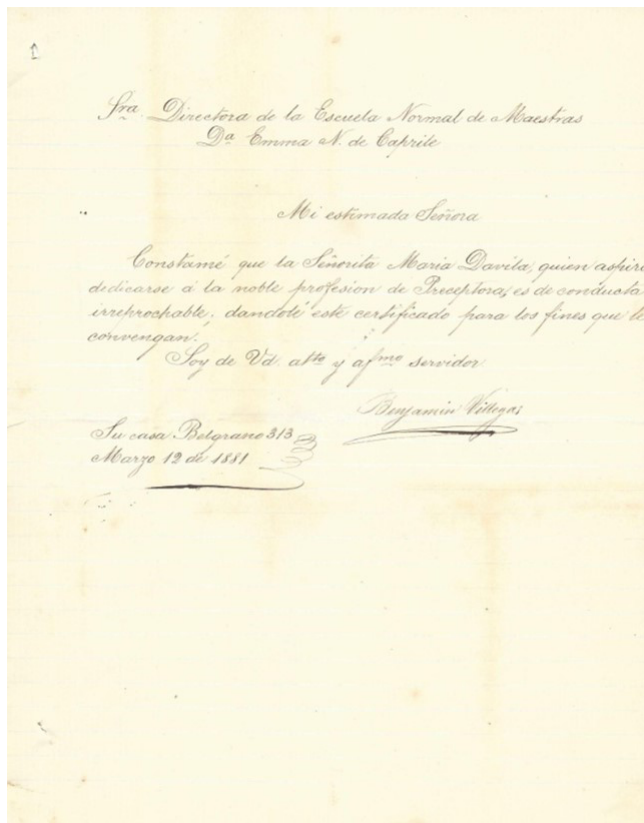 Sra. Directora de la Escuela Normal de Maestras
Da Emma N. de Caprile
Mi estimada Señora
Constamé que la Señorita Maria Davila, quien aspira
dedicarse á la noble profesion de Preceptora, es de conducta
irreprochable; dandolé este certificado para los fines que le
convengan.
Soy de Vd. atto y afmo servidor
Benjamin Villegas
Su casa Belgrano 313
Marzo 12 de 1881